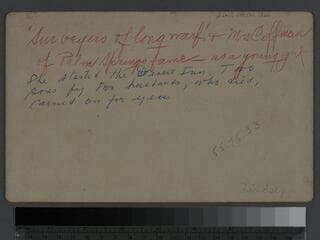 "Surveyors of long warf" & Mrs Coffman
of Palm Springs fame - as a young girl
She started the Desert Inn. Two
sons by two husbands, who died,
carried on for years
55.75.53
Lindsey